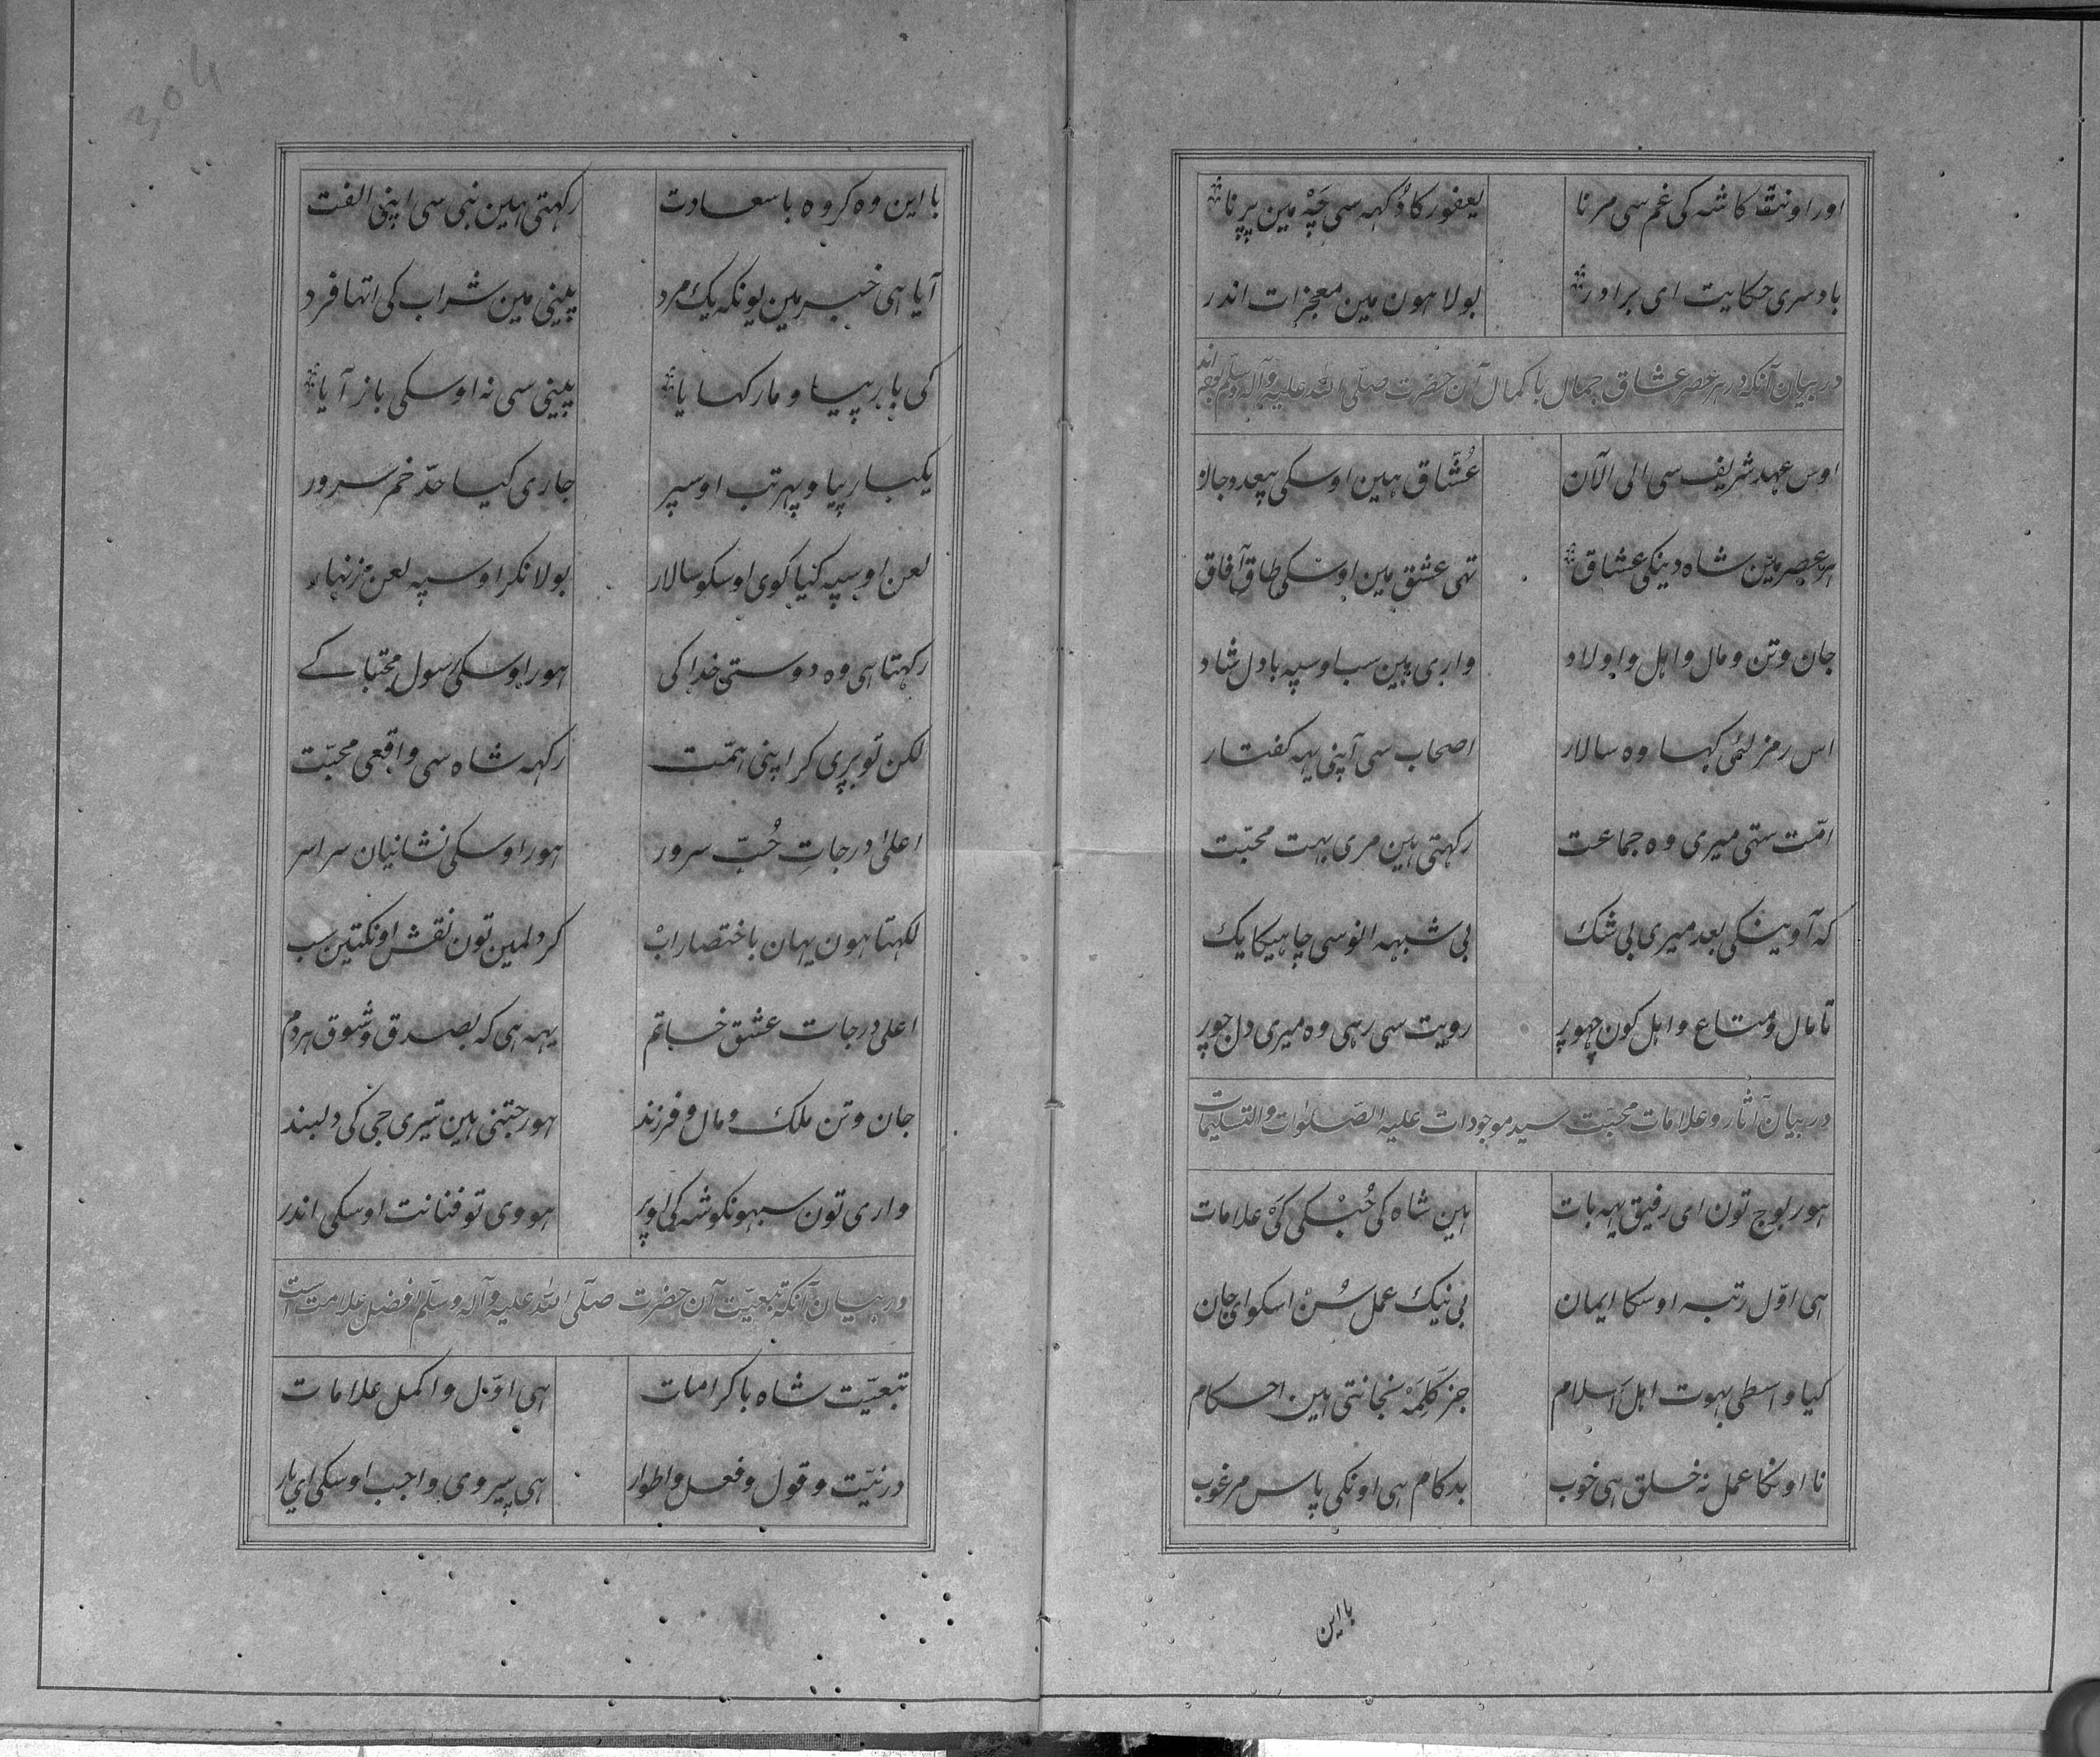 اور اونٹ کا شہ کی غم سی مرنا یعفور کا دُکہہ سی چَہْ مین پرنا
بادسری حکایت ای برادر بولا ہون مین معجزات اندر
در بیان آنکہ در ہر عصر عشاق جمال با کمال آن حضرت صلّی اللہ علیہ وآلہ وسلّم بودہ اند
اوس عہد شریف سی الی الآن عُشّاق ہلین اوسکی بیعد وجان
ہر عصر مین شاہ دینکی عشاق تہی عشق مین اوسکی طاق آفاق
جان وتن ومال واہل واولاد واری ہین سب اوسپہ بادل شاد
اس رمز لئی کہا وہ سالار اصحاب سی آپنی یہہ کفتار
امّت ستہی میری وہ جماعت رکہتی ہلین مری بہت محبّت
کہ آوینکی بعد میری بی شک بی شبہہ انوسی چاہیکا یک
تا مال ومتاع واہل کون چہور رویت سی رہی وہ میری دل جور
در بیان آثار وعلامات محبّت سید موجودات علیہ الصّلوات والتسلیمات
ہور بوج تون ای رفیق یہہ بات ہلین شاہ کی حُبْ کی کَیْ علامات
ہی اوّل رتبہ اوسکا ایمان بی نیک عمل سُنْ اسکو ای جان
کیا واسطی بہوت اہل اسلام جز کَلِمَہْ نجانتی ہین احکام
نا اونکا عمل نہ خلق ہی خوب بد کام ہی اونکی پاس مرغوب
با این
با این وہ کروہ با سعادت رکہتی ہلین نبی سی اپنی الفت
آیا ہی خبر مین یونکہ یک مرد پینی مین شراب کی اتہا فرد
کی بار پیا ومار کہایا پینی سی نہ اوسکی باز آیا
یکبار پیا وپہر تب اوسپر جاری کیا حدّ خمر سرور
لعن اوسپہ کیا کوی اوسکو سالار بولا نکر اوسپہ لعن زنہار
رکہتا ہی وہ دوستی خدا کی ہور اوسکی رسول مجتبا کے
لکن تو بری کر اپنی ہمّت رکہہ شاہ سی واقعی محبّت
اعلیٰ درجاتِ حُبّ سرور ہور اوسکی نشانیان سراسر
لکہتا ہون یہان باختصار ابْ کر دلمین تون نقش اونکتین سب
اعلیٰ درجات عشق خاتم یہہ ہی کہ بصدق وشوق ہردم
جان وتن ملک ومال وفرزند ہور جتنی ہلین تیری جی کی دلبند
واری تون سبہونکو شہ کی اوپر ہووی تو فنانت اوسکی اندر
در بیان آنکہ تبعیّت آن حضرت صلّی اللہ علیہ وآلہ وسلّم افضل علامت است
تبعیّت شاہ با کرامات ہی اوّل واکمل علامات
در نیّت وقول وفعل واطوار ہی پیروی واجب اوسکی ای یار